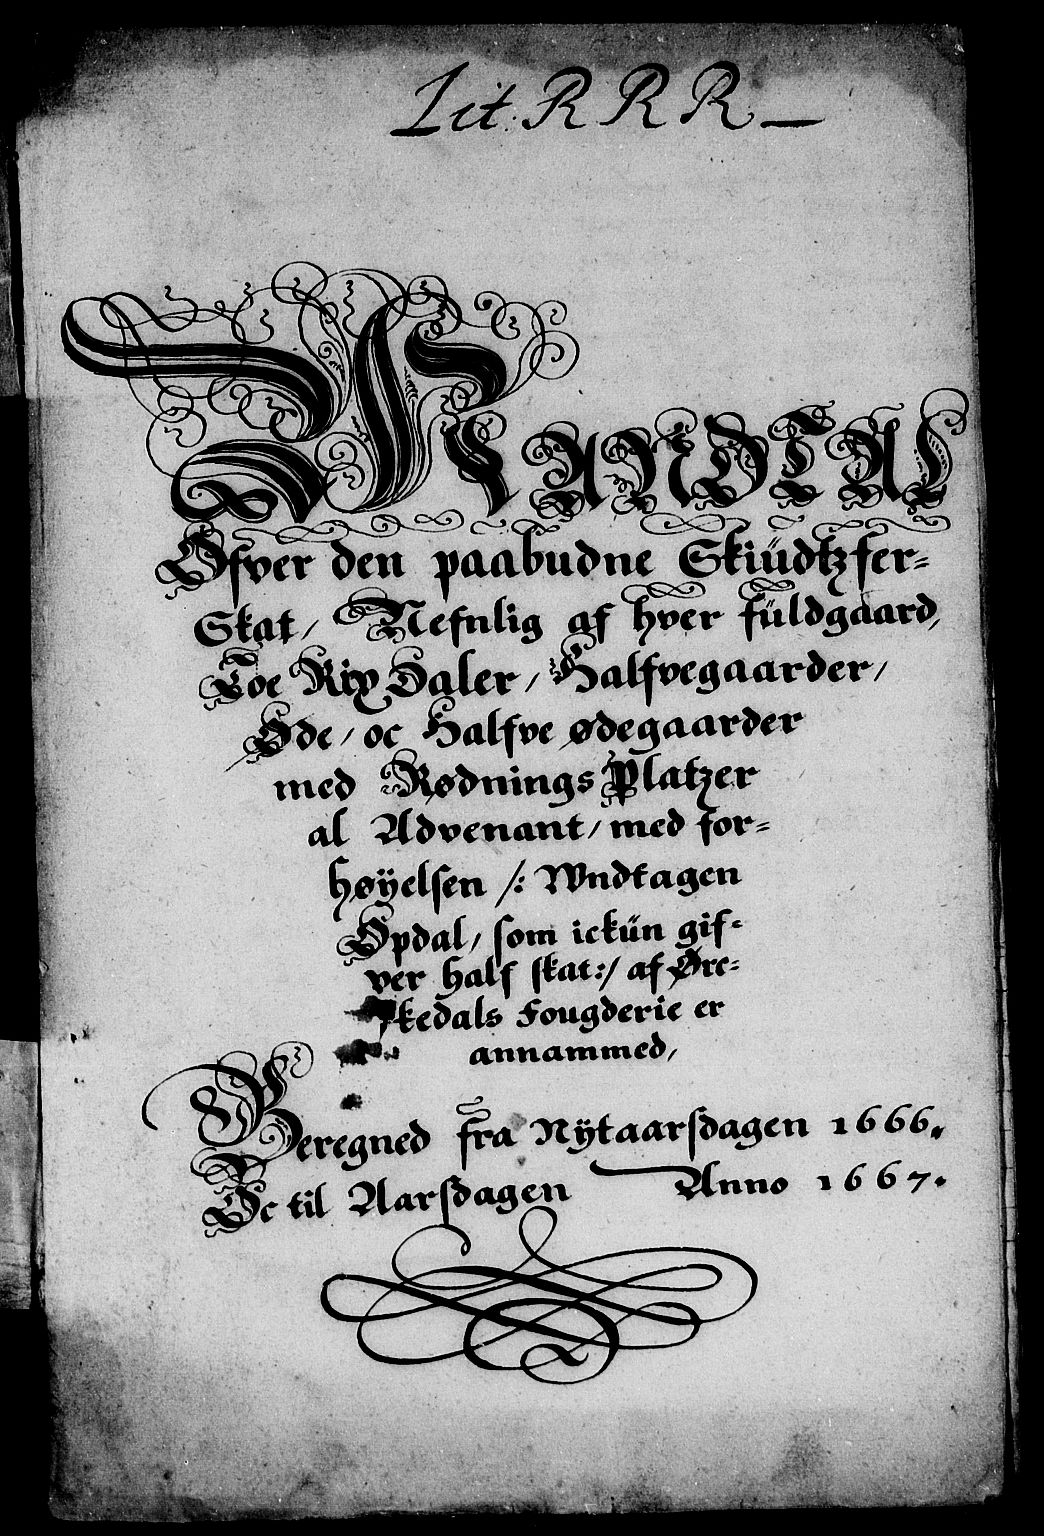 Lit. R R R
MANDTAL
Ofver den paabudne Skiüdtzfer=
Skat/ Nefnlig af hver füldgaard,
Toe Rix Daler/ Halfvegaarder/
Øde/ oc Halfve ødegaarder
med Rødnings Platzer
al Advenant/ med for=
høÿelsen /: Wndtagen
Opdal/ som ickün gif=
ver half skat:/ af Øre=
kedals Fougderie er
annammed/
Beregned fra Nÿtaarsdagen 1666.
Oc til Aarsdagen Anno 1667.